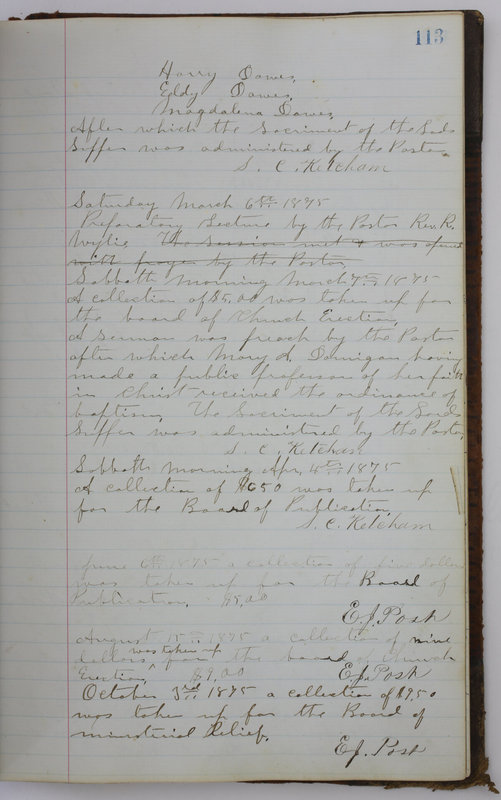 113
Harry Dawes,
Eddy Dawes,
Magdalena Dawes,
After which the Sacriment of the Lods
Suffer was administered by the Pastor
S. C. Ketcham
Saturday March 6th 1875
Preparatory Lecture by the Pastor Rev. R.
Wylie The Session met & was opened
with prayer by the Pastor,
Sabbath Morning March 7th 1875
A collection of $5.00 was taken up for
the board of Church Erection,
A Sermon was preach by the Pastor
after which Mary A. Dannigan having
made a public profession of her faith
in Christ received the ordinance of
baptism, The Sacriment of the Lord
Suffer was administered by the Pastor,
S. C. Ketcham
Sabbath Morning Apr, 4th 1875
A collection of $6.50 was taken up
for the Board of Publication,
S. C. Ketcham
June 6th 1875 a collection of five dollars
was taken up for the Board of
Publication, $5,00
E. J. Post
August 15th 1875 a collection of nine
dollars was taken up for the board of Church
Erection, $9.00 E. J. Post
October 3rd 1875 a collection of $9.50
was taken up for the Board of
ministerial Relief,
E. J. Post